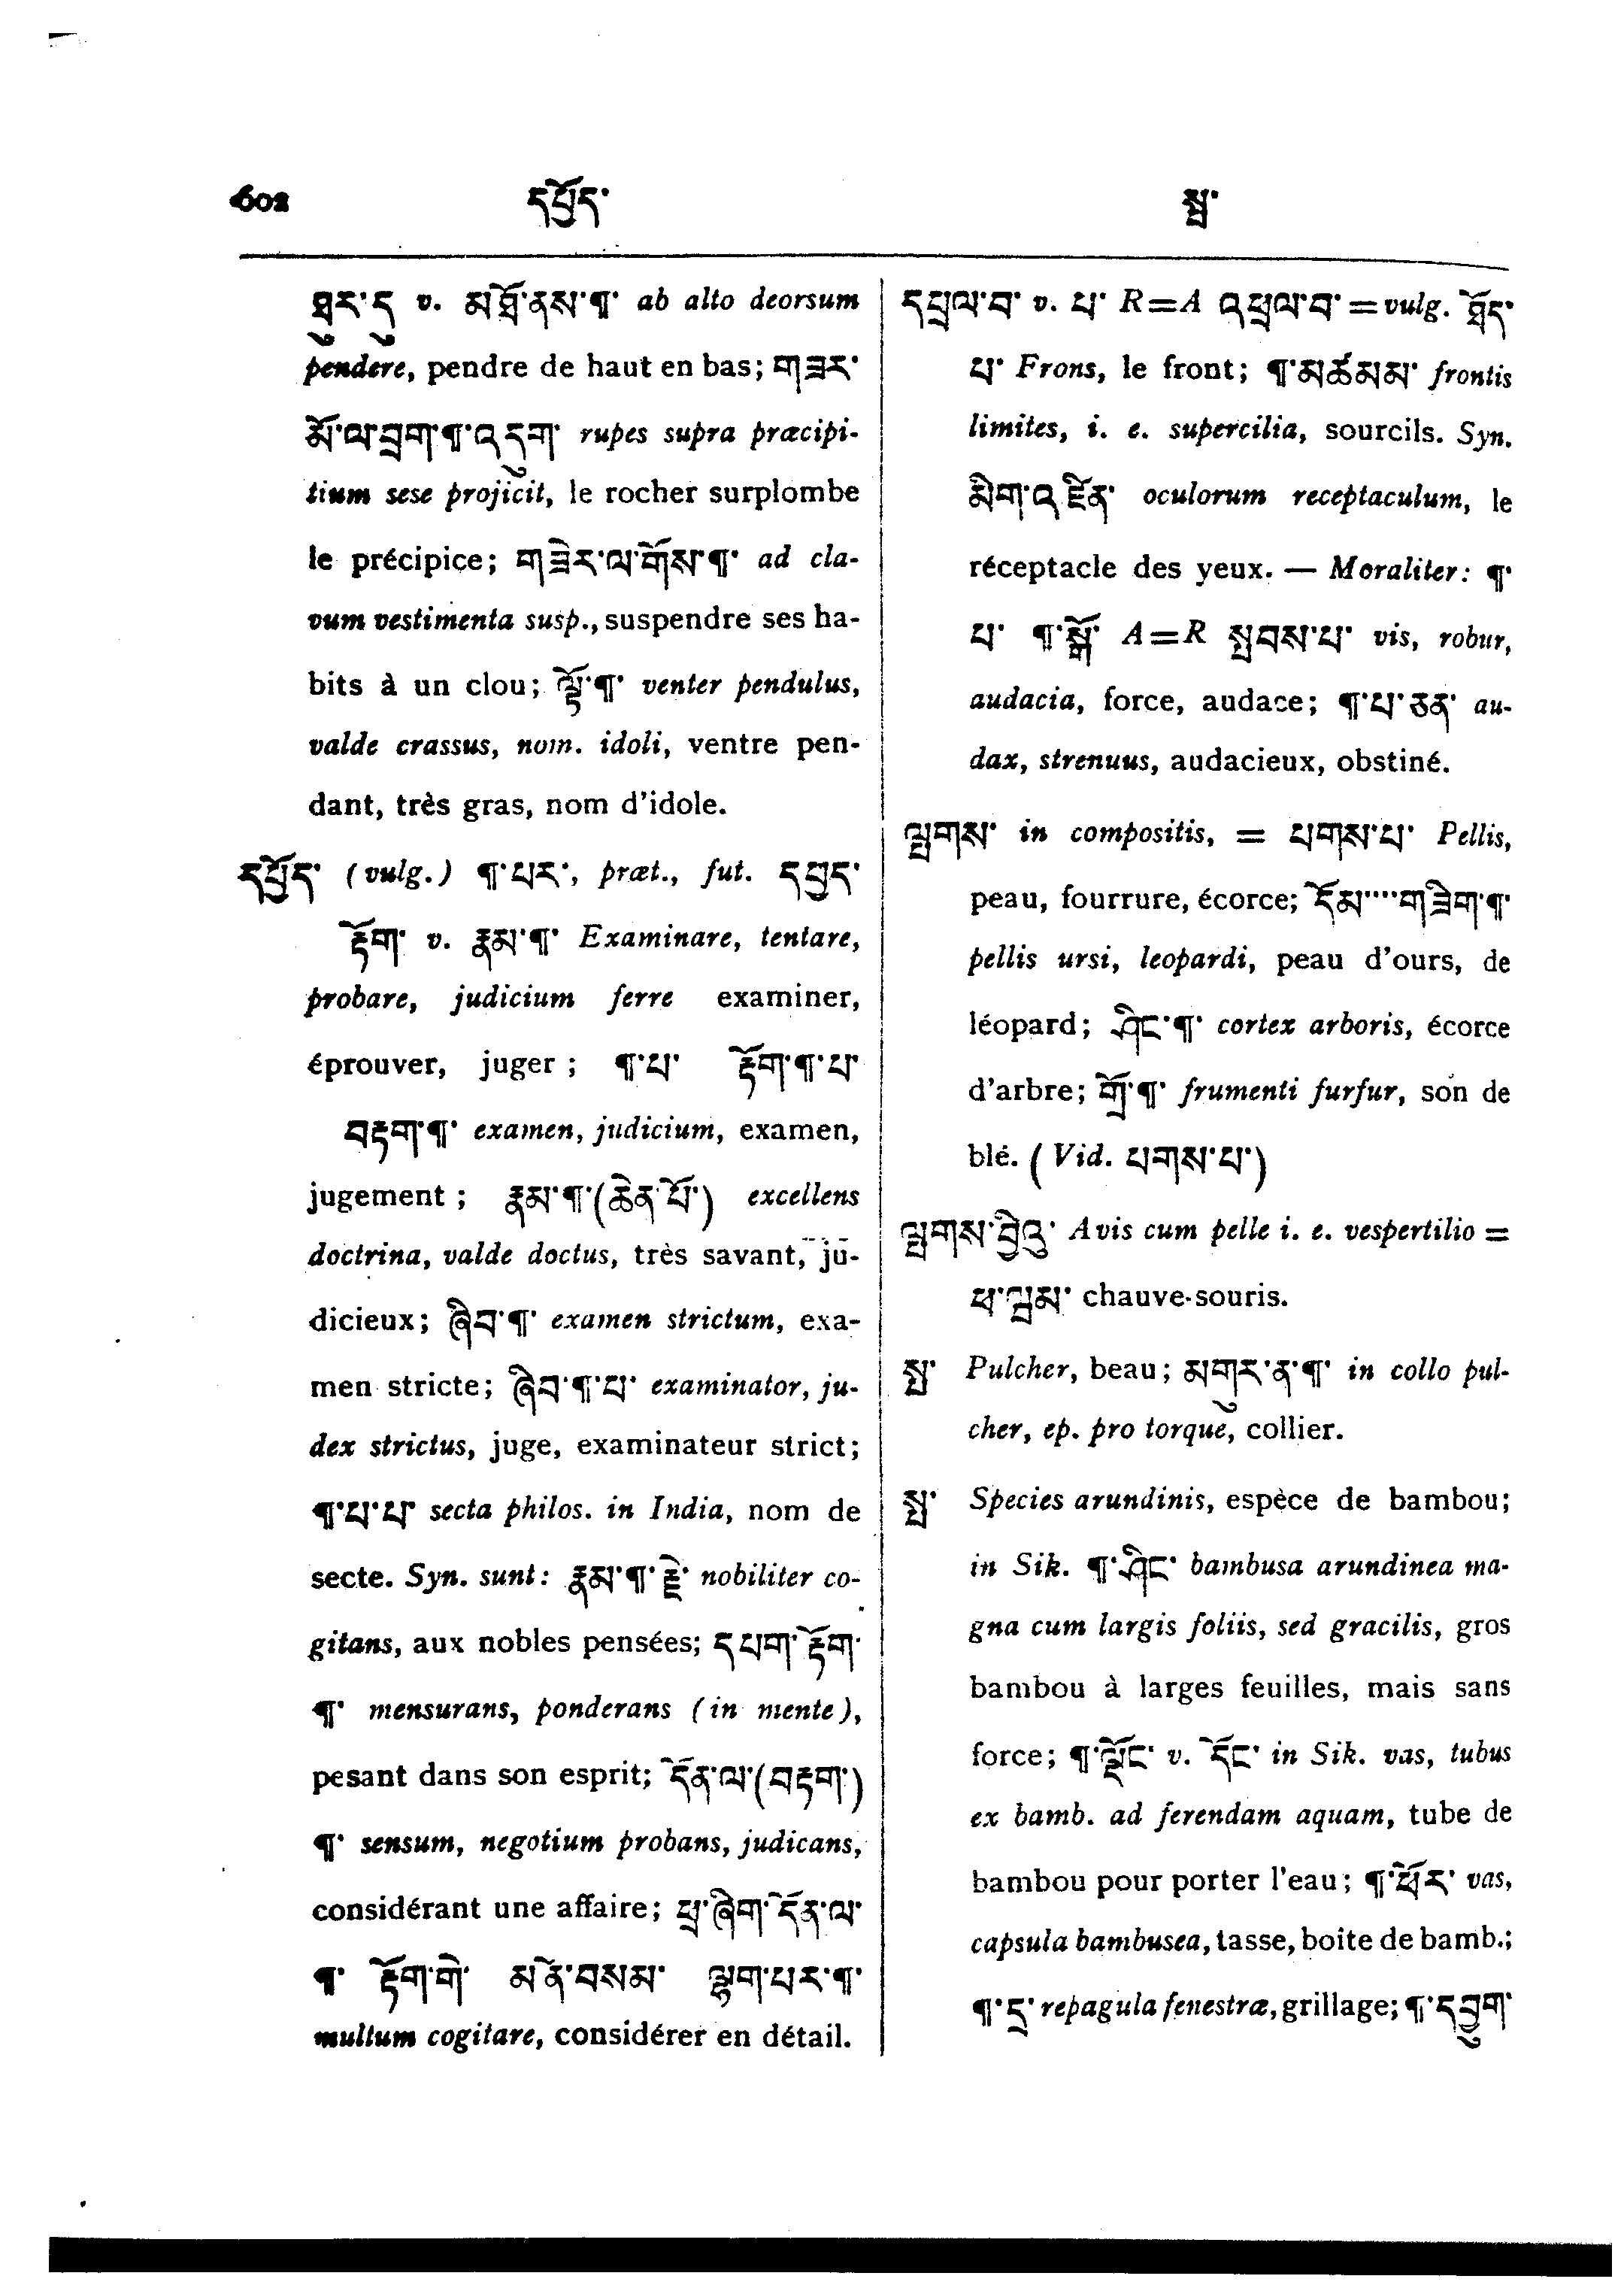 602 དཔྱོད་ སྤ་
ཐུར་དུ v. མཐོ་ནས་¶་ ab alto deorsum
pendere, pendre de haut en bas; གཟར་
མོ་ལ་བྲག་¶་འདུག་ rupes supra præcipi-
tium sese projicit, le rocher surplombe
le précipice; གཟེར་ལ་གོས་¶་ ad cla-
vum vestimenta susp., suspendre ses ha-
bits à un clou; ལྟོ་¶་ venter pendulus,
valde crassus, nom. idoli, ventre pen-
dant, très gras, nom d'idole.
དཔྱོད་ (vulg.) ¶་པར་, præt., fut. དཔྱད་
རྟོག་ v. རྣམ་¶་ Examinare, tentare,
probare, judicium ferre examiner,
éprouver, juger; ¶་པ་ རྟོག་¶་པ་
བརྟག་¶་ examen, judicium, examen,
jugement; རྣམ་¶་(ཆེན་པོ་) excellens
doctrina, valde doctus, très savant, ju-
dicieux; ཞིབ་¶་ examen strictum, exa-
men stricte; ཞིབ་¶་པ་ examinator, ju-
dex strictus, juge, examinateur strict;
¶་པ་པ་ secta philos. in India, nom de
secte. Syn. sunt: རྣམ་¶་རྗེ་ nobiliter co-
gitans, aux nobles pensées; དཔག་རྟོག་
¶་ mensurans, ponderans (in mente),
pesant dans son esprit; དོན་ལ་(བརྟག་)
¶་ sensum, negotium probans, judicans,
considérant une affaire; ཕྲ་ཞིག་དོན་ལ་
¶་ རྟོག་གེ་ མནོ་བསམ་ ལྷག་པར་¶་
multum cogitare, considérer en détail.
དཔྲལ་བ་ v. པ་ R=A འཕྲལ་བ་ = vulg. ཐོད་
པ་ Frons, le front; ¶་མཚམས་ frontis
limites, i. e. supercilia, sourcils. Syn.
མིག་འཛིན་ oculorum receptaculum, le
réceptacle des yeux. — Moraliter: ¶་
པ་ ¶་སྒོ་ A=R སྤབས་པ་ vis, robur,
audacia, force, audace; ¶་པ་ཅན་ au-
dax, strenuus, audacieux, obstiné.
ལྤགས་ in compositis, = པགས་པ་ Pellis,
peau, fourrure, écorce; དོམ་...་གཟིག་¶་
pellis ursi, leopardi, peau d'ours, de
léopard; ཤིང་¶་ cortex arboris, écorce
d'arbre; གྲོ་¶་ frumenti furfur, son de
blé. (Vid. པགས་པ་)
ལྤགས་བྱིའུ་ Avis cum pelle i. e. vespertilio =
ཕ་ལྤམ་ chauve-souris.
སྤ་ Pulcher, beau; མགུར་ན་¶་ in collo pul-
cher, ep. pro torque, collier.
སྤ་ Species arundinis, espèce de bambou;
in Sik. ¶་ཤིང་ bambusa arundinea ma-
gna cum largis foliis, sed gracilis, gros
bambou à larges feuilles, mais sans
force; ¶་ལྡོང་ v. དོང་ in Sik. vas, tubus
ex bamb. ad ferendam aquam, tube de
bambou pour porter l'eau; ¶་ཕོར་ vas,
capsula bambusea, tasse, boite de bamb.;
¶་དྲ་ repagula fenestræ, grillage; ¶་དབྱུག་